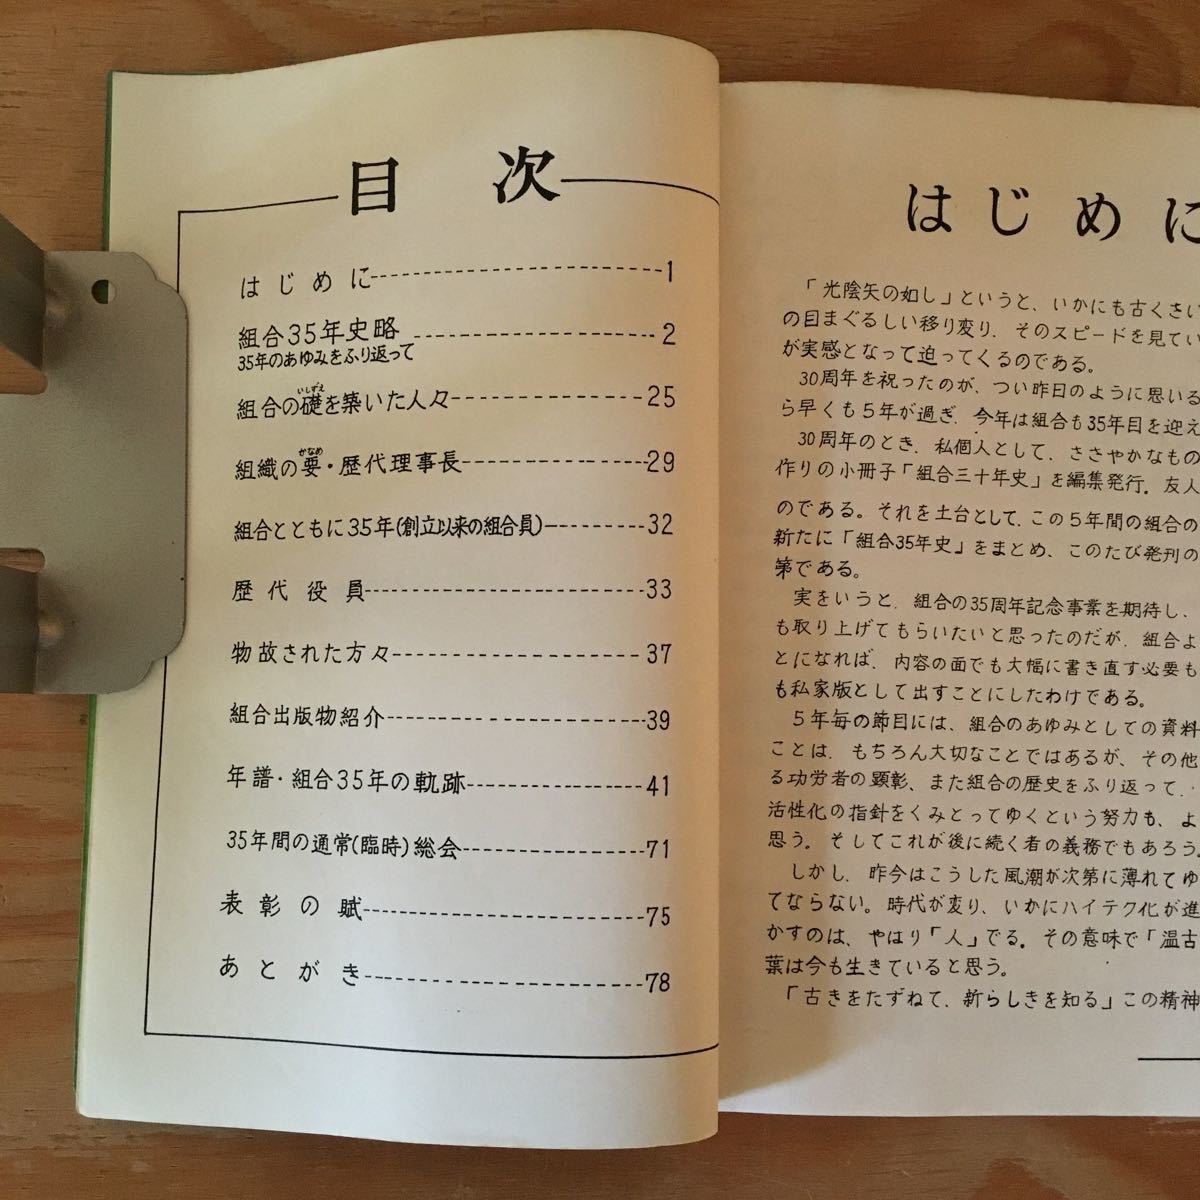 目次
はじめに 1
組合35年史略 2
35年のあゆみをふり返って
組合の礎を築いた人々 25
いしずえ
組織の要・歴代理事長 29
かなめ
組合とともに35年(創立以来の組合員) 32
歴代役員 33
物故された方々 37
組合出版物紹介 39
年譜・組合35年の軌跡 41
35年間の通常(臨時)総会 71
表彰の賦 75
あとがき 78
はじめに
「光陰矢の如し」というと、いかにも古くさい
の目まぐるしい移り変り、そのスピードを見てい
が実感となって迫ってくるのである。
30周年を祝ったのが、つい昨日のように思いる
ら早くも5年が過ぎ、今年は組合も35年目を迎え
30周年のとき、私個人として、ささやかなもの
作りの小冊子「組合三十年史」を編集発行、友人
のである。それを土台として、この5年間の組合の
新たに「組合35年史」をまとめ、このたび発刊の
第である。
実をいうと、組合の35周年記念事業を期待し、
も取り上げてもらいたいと思ったのだが、組合よ
とになれば、内容の面でも大幅に書き直す必要も
も私家版として出すことにしたわけである。
5年毎の節目には、組合のあゆみとしての資料
ことは、もちろん大切なことではあるが、その他
る功労者の顕彰、また組合の歴史をふり返って、
活性化の指針をくみとってゆくという努力も、よ
思う。そしてこれが後に続く者の義務でもあろう。
しかし、昨今はこうした風潮が次第に薄れてゆ
てならない。時代が変り、いかにハイテク化が進
かすのは、やはり「人」でる。その意味で「温古
葉は今も生きていると思う。
「古きをたずねて、新らしきを知る」この精神